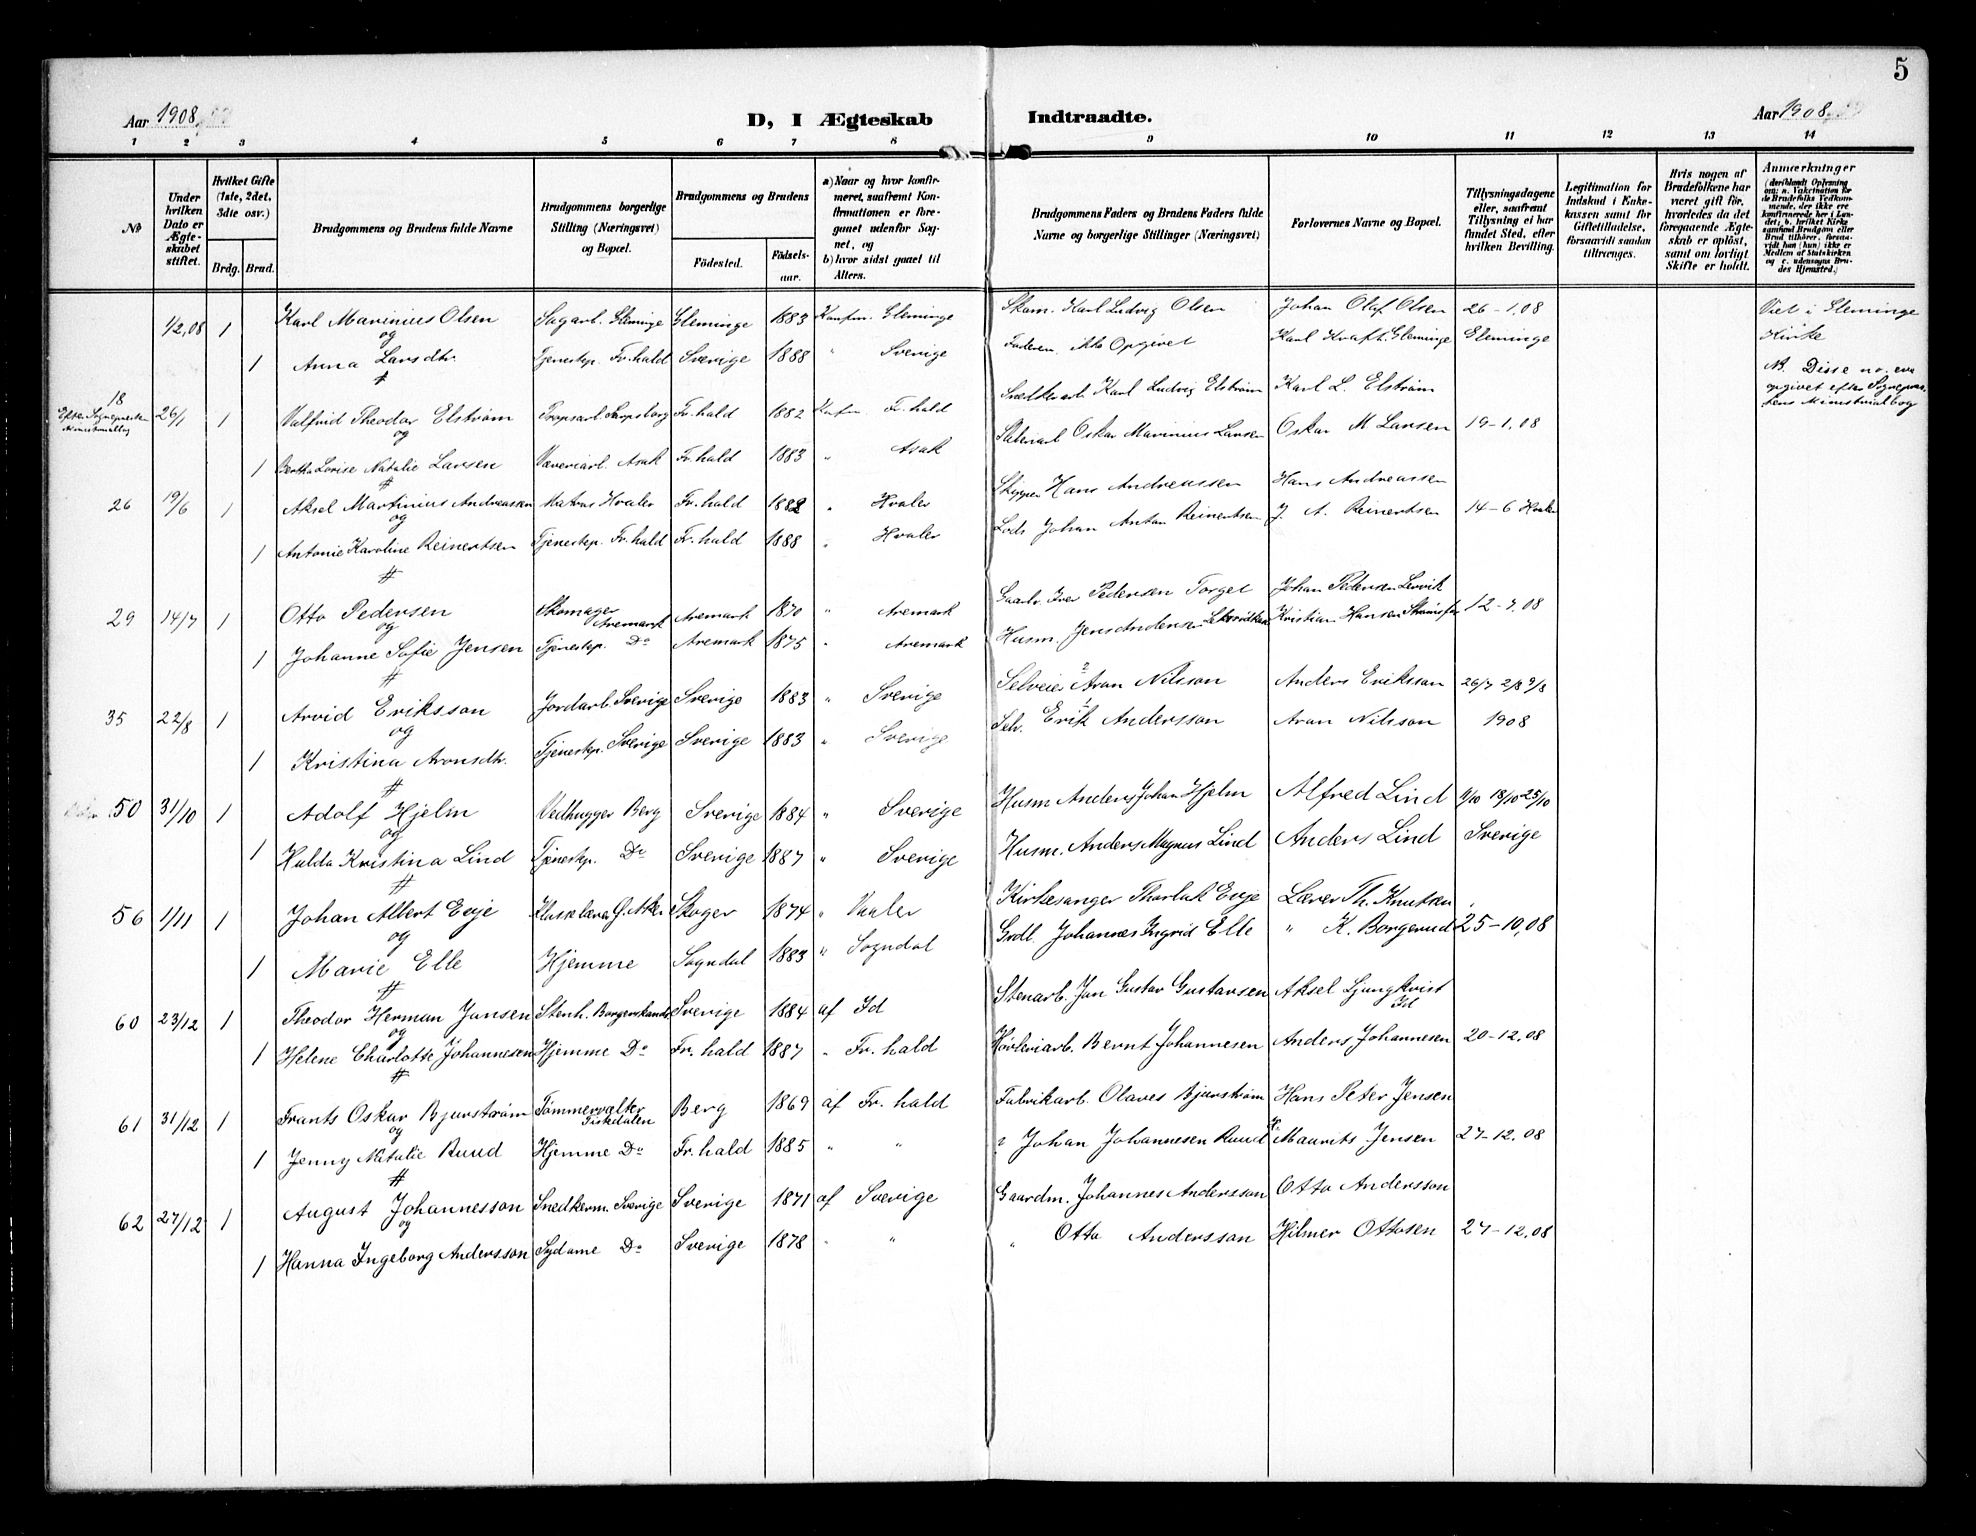 5
Aar 1908
D, I Ægteskab Indtraadte.
Aar 1908
1 2 3 4 5 6 7 8 9 10 11 12 13 14
No
Under hvilken Dato er Ægteskabet stiftet.
Hvilket Gifte (1ste, 2det, 3dte osv.)
Brdg. Brud.
Brudgommens og Brudens fulde Navne
Brudgommens borgerlige Stilling (Næringsvei) og Bopæl.
Brudgommens og Brudens
Födested. Födselsaar.
a) Naar og hvor konfirmeret, saafremt Konfirmationen er foregaaet udenfor Sognet, og
b) hvor sidst gaaet til Alters.
Brudgommens Faders og Brudens Faders fulde Navne og borgerlige Stillinger (Næringsvei)
Forlovernes Navne og Bopæl.
Tillysningsdagene eller, saafremt Tillysning ei har fundet Sted, efter hvilken Bevilling.
Legitimation for Indskud i Enkekassen samt for Giftetilladelse, forsaavidt saadan tiltrænges.
Hvis nogen af Brudefolkene har været gift för, hvorledes da det foregaaende Ægteskab er oplöst, samt om lovligt Skifte er holdt.
Anmerkninger
(deriblandt Oplysning om: a. Vakcination for de Brudefolks Vedkommende, der ikke ere konfirmerede her i Landet; b. hvilket Kirkesamfund Brudgom eller Brud tilhörer, forsaavidt han (hun) ikke er Medlem af Statskirken og c. udensogns Brudes Hjemsted.)
1/2,08 1 Karl Marinius Olsen Sagarb. Gleminge Gleminge 1883 Konfm. Gleminge Skom. Karl Ludvig Olsen Johan Olaf Olsen 26-1,08 Viet i Gleminge
og
1 Anna Larsdtr. Tjenestep. Fr.hald Sverige 1888 " Sverige Faderen ikke Opgivet Karl Kraft. Gleminge Gleminge Kirke
NB Disse no. ere
opgivet efter Sognepres-
tens Ministerialbog
18
Efter Sognepresten
Ministerialbog
26/1 1 Valfrid Theodor Elstrøm Sarpsborg Fr.hald 1882 Konfm Fr.hald Karl Ludvig Elstrøm Karl L. Elstrøm
og
1 Bertha Lovise Natalie Larsen Væveriarb. Asak Fr.hald 1883 " Asak Oskar Marinius Larsen Oskar M Larsen 19-1,08
26 19/6 1 Aksel Martinius Andreassen Matros Hvaler Fr.hald 1882 " Hvaler Skipper Hans Andreassen Hans Andreassen
og
1 Antonie Karoline Reinertsen Tjenestep. Fr.hald Fr.hald 1888 " Hvaler Lods Johan Anton Reinertsen J. A. Reinertsen 14-6 Hvaler
29 14/7 1 Otto Pedersen Skomager Aremark Aremark 1870 " Aremark Iver Pedersen Torget Johan Pedersen Lervik
og
1 Johanne Sofie Jensen Tjenestep. Do Aremark 1875 " Aremark Husm. Jens Andersen Kristian Hansen 12-7,08
35 22/8 1 Arvid Eriksson Jordarb. Sverige Sverige 1883 " Sverige Selveier 2 Aron Nilsson Anders Eriksson 26/7 2/8 9/8
og
1 Kristina Aronsdtr. Tjenestep. Sverige Sverige 1883 " Sverige Selv. 1 Erik Andersson Aron Nilsson 1908
50 31/10 1 Adolf Hjelm Vedhugger Berg Sverige 1884 " Sverige Husm Anders Johan Hjelm Alfred Lind 11/10 18/10 25/10
og
1 Hulda Kristina Lind Tjenestp. Do Sverige 1887 " Sverige Husm. Anders Magnus Lind Anders Lind Sverige
56 1/11 1 Johan Albert Evje Ø. Aker Skoger 1874 " Vaaler Kirkesanger Thorluk Evje Lærer Th. Knutsen
og
1 Marie Elle Hjemme Sogndal 1883 " Sogndal Grdl. Johannes Ingrid Elle " K. Borgerud 25-10,08
60 23/12 1 Theodor Herman Jansen Stenh. Borgenskands Sverige 1884 af Id Stenarb. Jan Gustav Gustavsen Aksel Ljungkvist Id
og
1 Helene Charlotte Johannesen Hjemme Do Fr.hald 1887 " Fr.hald Høvleriarb. Bernt Johannesen Anders Johannesen 20-12,08
61 31/12 1 Frants Oskar Bjurstrøm Tømmervalter Tiskdalen Berg 1869 af Fr.hald Fabrikarb. Olaves Bjurstrøm Hans Peter Jensen
og
1 Jenny Natalie Ruud Hjemme Do Fr.hald 1885 " " Johan Johannesen Ruud Maurits Jensen 27-12,08
62 27/12 1 August Johannesson Snedkerm. Sverige Sverige 1871 af Sverige Gaardm. Johannes Andersson Otto Andersson
og
1 Hanna Ingeborg Andersson Sydame Do Sverige 1878 " " " Otto Andersson Hilmer Ottosen 27-12,08